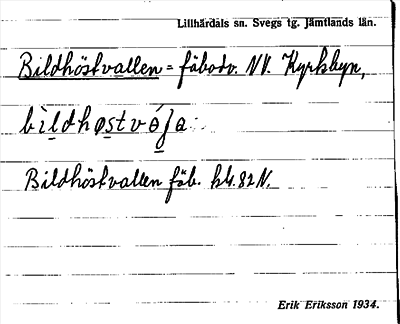 Lillhärdals sn. Svegs tg. Jämtlands län.
Bildhöstvallen = fäbodv. NV. Kyrkbyn,
bìldhøstvóʃa
Bildhöstvallen fäb. kb. 82 N.
Erik Eriksson 1934.